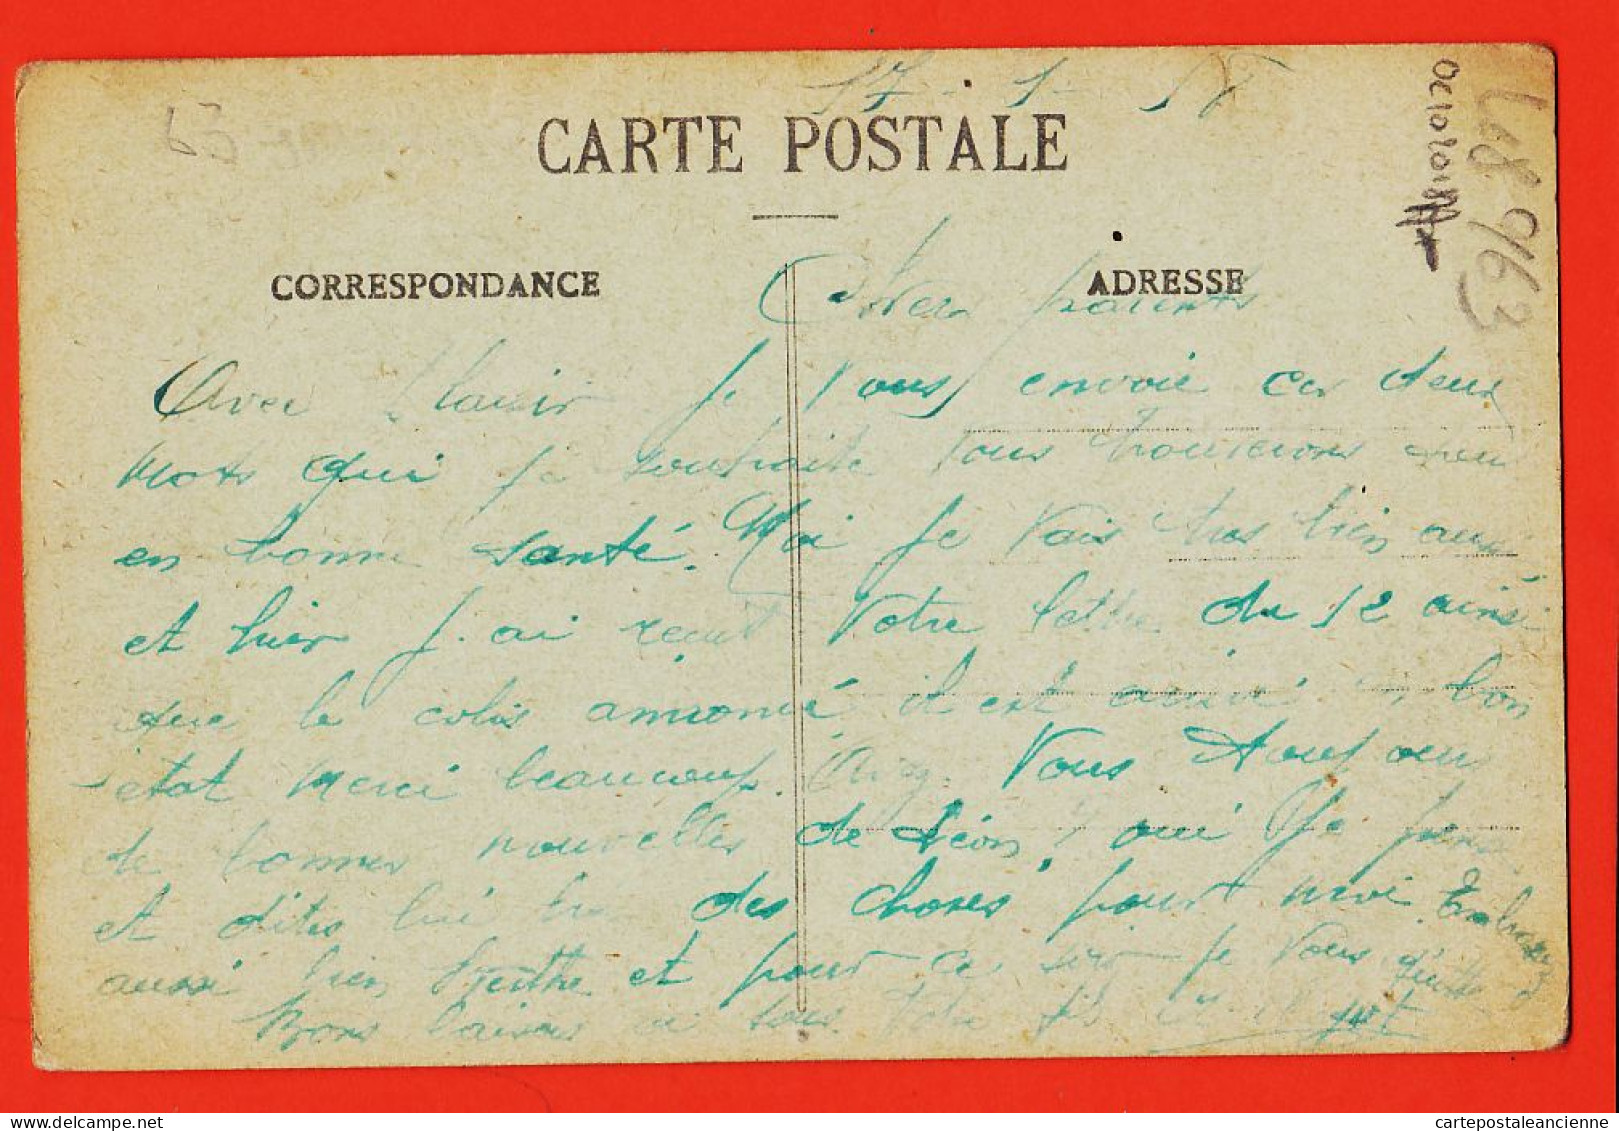 17 - 1 - 18
CARTE POSTALE
CORRESPONDANCE
ADRESSE
Chers parents
Avec plaisir je vous envoie ces deux
mots qui je souhaite vous trouverons tous
en bonne santé. Moi je vais tres bien aussi
et hier j'ai reçut votre lettre du 12 ainsi
que le colis annoncé il est arrivé en bon
état merci beaucoup. Avez vous toujours
de bonnes nouvelles de Léon? oui je pense
et dites lui des choses pour moi. Embrassez
aussi bien et pour ce soir je vous quitte
Bons baisers a tous votre fils
68963
OC102018
cartepostaleancienne